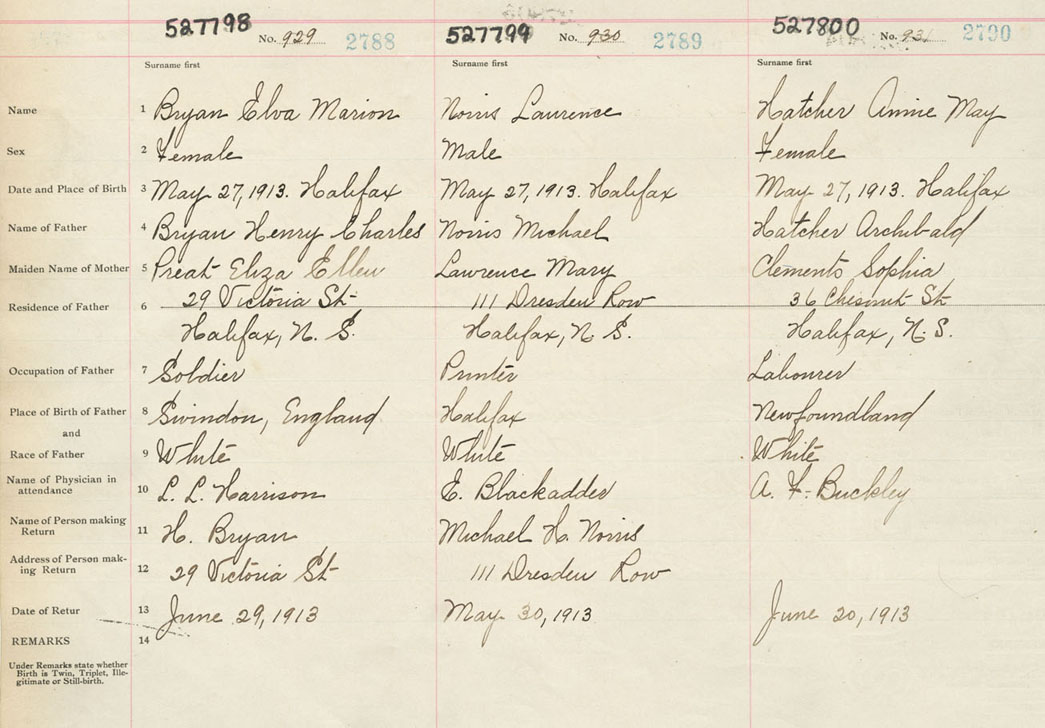 527798 No. 929 2788 527799 No. 930 2789 527800 No. 931 2790
Surname first Surname first Surname first
Name 1 Bryan Elva Marion Norris Laurence Hatcher Annie May
Sex 2 Female Male Female
Date and Place of Birth 3 May 27, 1913. Halifax May 27, 1913. Halifax May 27, 1913. Halifax
Name of Father 4 Bryan Henry Charles Norris Michael Hatcher Archibald
Maiden Name of Mother 5 Preat Eliza Ellen Lawrence Mary Clements Sophia
Residence of Father 6 29 Victoria St 111 Dresden Row 36 Chesnut St
Halifax, N. S. Halifax, N. S. Halifax, N. S.
Occupation of Father 7 Soldier Printer Labourer
Place of Birth of Father 8 Swindon, England Halifax Newfoundland
and
Race of Father 9 White White White
Name of Physician in
attendance 10 L. L. Harrison E. Blackadder A. F. Buckley
Name of Person making
Return 11 H. Bryan Michael H. Norris
Address of Person mak-
ing Return 12 29 Victoria St 111 Dresden Row
Date of Retur 13 June 29, 1913 May 30, 1913 June 20, 1913
REMARKS 14
Under Remarks state whether
Birth is Twin, Triplet, Ille-
gitimate or Still-birth.